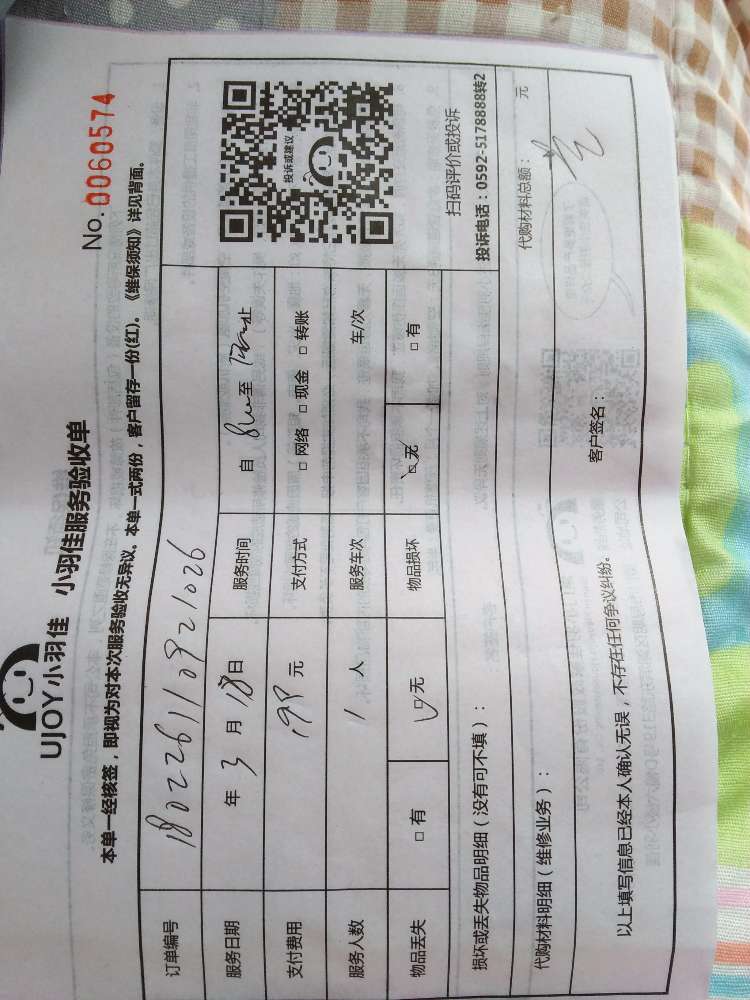 No. 0060574
UJOY小羽佳 小羽佳服务验收单
本单一经核签，即视为对本次服务验收无异议。本单一式两份，客户留存一份(红)。《维保须知》详见背面。
订单编号 180226110921026
服务日期 年 3 月 18 日 服务时间 自 至 止
支付费用 198 元 支付方式 □ 网络 □ 现金 □ 转账
服务人数 1 人 服务车次 车/次
物品丢失 □ 有 □ 无 物品损坏 □ 无 □ 有
投诉或建议
扫码评价或投诉
投诉电话：0592-5178888转2
损坏或丢失物品明细（没有可不填）：
代购材料明细（维修业务）： 代购材料总额： 元
以上填写信息已经本人确认无误，不存在任何争议纠纷。 客户签名：